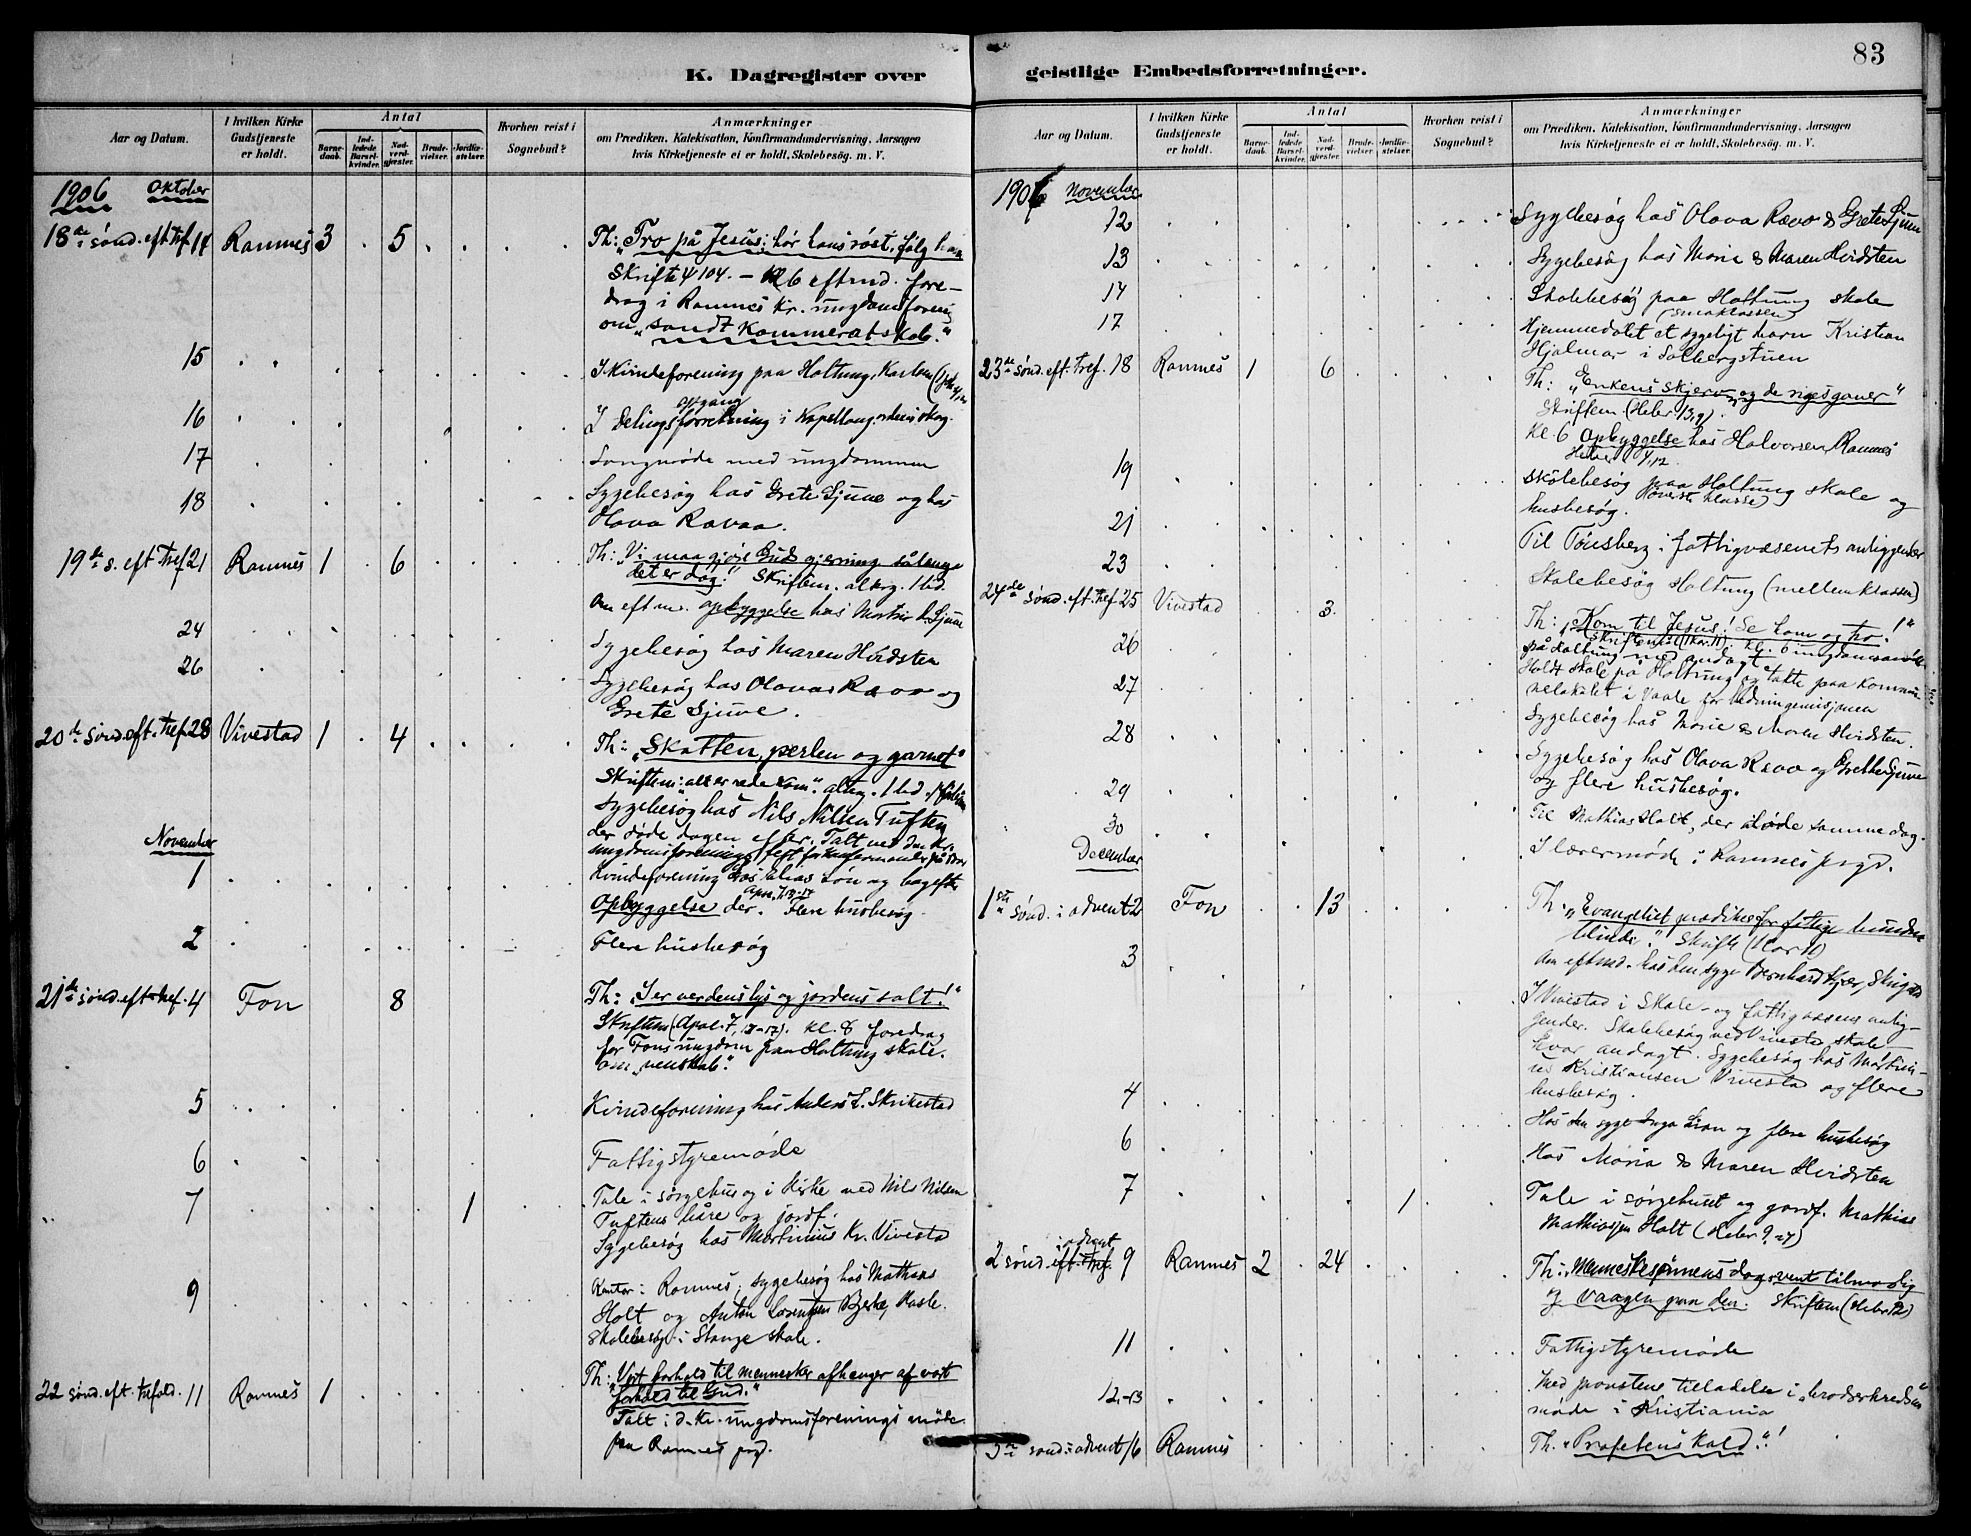 K. Dagregister over
Aar og Datum.
I hvilken Kirke Gudstjeneste er holdt.
Antal
Barnedaab.
Indledede Barselkvinder.
Nadverdgjester.
Brudevielser.
Jordfæstelser.
Hvorhen reist i Sognebud?
Anmærkninger
om Prædiken, Katekisation, Konfirmandundervisning, Aarsagen
hvis Kirketjeneste ei er holdt, Skolebesøg. m. V.
1906 Oktober
18de sønd. eft. tref. 14 Ramnes 3 5 Th: "Tro på Jesus: hør hans røst, følg ham
Skrifte 4 104. - Kl 6 eftmd. fore-
drag i Ramnes kr. ungdomsforening
om "sandt kammeratskab."
15 I Kvindeforening paa Holtung
16 opgang
I delingsforretning i
17 Sangmøde med ungdommen
18 Sygebesøg hos Grete Sjuve og hos
Olava Ravaa.
19de s. eft. tref 21 Ramnes 1 6 Th: Vi maa gjøre Guds gjerning sålænge
det er dag! Skriftem.
Om eftm. opbyggelse hos
24 Sygebesøg hos Maren Hvidsten
26 Sygebesøg hos Olava Ravo og
Grete Sjuve.
20de sønd. eft. tref. 28 Vivestad 1 4 Th: "Skatten, perlen og garnet"
Skriftem: "alt er rede kom".
Sygebesøg hos Nils Nilsen Tuften
der døde dagen efter. Talt ved den kr.
ungdomsforenings fest for konfirmander
November
1 Kvindeforening hos Elias Løn og bagefter
Opbyggelse der. Flere husbesøg.
2 Flere husbesøg
21de sønd. eft. tref. 4 Fon 8 Th: "I er verdens lys og jordens salt!"
Skriftem (Apol. 7, 13-17). Kl. 8 foredrag
for Fons ungdom paa Holtung skole
om "venskab."
5 Kvindeforening hos Anders L. Skrikestad
6 Fattigstyremøde
7 1 Tale i sørgehus og i Kirke ved Nils Nilsen
Tuftens båre og jordf.
Sygebesøg hos Martinius Kr. Vivestad
9 Kontor i Ramnes; sygebesøg hos Mathias
Holt og Anton Lorentzen
Skolebesøg i Stange skole.
22 sønd. eft. trefold. 11 Ramnes 1 Th: "Vort forhold til mennesker afhænger af vort
forhold til Gud."
Talt i d. kr. ungdomsforenings møde
paa Ramnes prgd.
83
geistlige Embedsforretninger.
Aar og Datum.
I hvilken Kirke Gudstjeneste er holdt.
Antal
Barnedaab.
Indledede Barselkvinder.
Nadverdgjester.
Brudevielser.
Jordfæstelser.
Hvorhen reist i Sognebud?
Anmærkninger
om Prædiken, Katekisation, Konfirmandundervisning, Aarsagen
hvis Kirketjeneste ei er holdt, Skolebesøg. m. V.
1906 November
12 Sygebesøg hos Olava Ravo & Grete Sjuve
13 Sygebesøg hos Marie & Maren Hvidsten
14 Skolebesøg paa Holtung skole
(småklassen)
17 Hjemmedøbt et sygeligt barn Kristian
Hjalmar i Solbergstuen
23de sønd. eft. tref. 18 Ramnes 1 6 Th: "Enkens skjerv og de riges gaver"
Skriftem (Hebr 13,9).
Kl. 6 Opbyggelse hos Halvorsen, Ramnes
19 Skolebesøg paa Holtung skole og
(øverste klasse)
husbesøg.
21 Til Tønsberg i fattigvæsenets anliggender
23 Skolebesøg Holtung (mellemklassen)
24de sønd. eft. tref 25 Vivestad 3 Th: "Kom til Jesus! Se ham og tro!"
på Holtung med andagt
26 Holdt skole på Holtung og talte paa kommu-
nelokalet i Vaale for hedningemisjonen
27 Sygebesøg hos Marie & Maren Hvidsten.
28 Sygebesøg hos Olava Ravo og Grethe Sjuve
og flere husbesøg.
29 Til Mathias Holt, der døde samme dag.
30 I lærermøde i Ramnes prgd.
December
1ste sønd. i advent 2 Fon 13 Th. "Evangeliet prædikes for fattige
blinde".
Om eftmd. hos den syge Bernhard Kjær,
3 I Vivestad i Skole- og fattigvæsens anlig-
gender. Skolebesøg ved Vivestad skole
hvor andagt. Sygebesøg hos Martini-
us Kristiansen Vivestad og flere
husbesøg.
4 Hos den syge Inga Lian og flere husbesøg
6 Hos Maria & Maren Hvidsten
7 1 Tale i sørgehuset og jordf. Mathias
Mathiassen Holt (Hebr 9,27)
2 sønd. i advent eft. tref. 9 Ramnes 2 24 Th: "Menneskesønnens dag: vent tålmodig
og vaagen paa den. Skriftem (Hebr 12)
11 Fattigstyremøde
12-13 Med provstens tilladelse i "broderkredsens"
møde i Kristiania
3de sønd. i advent 16 Ramnes Th. "Profetens kald"!